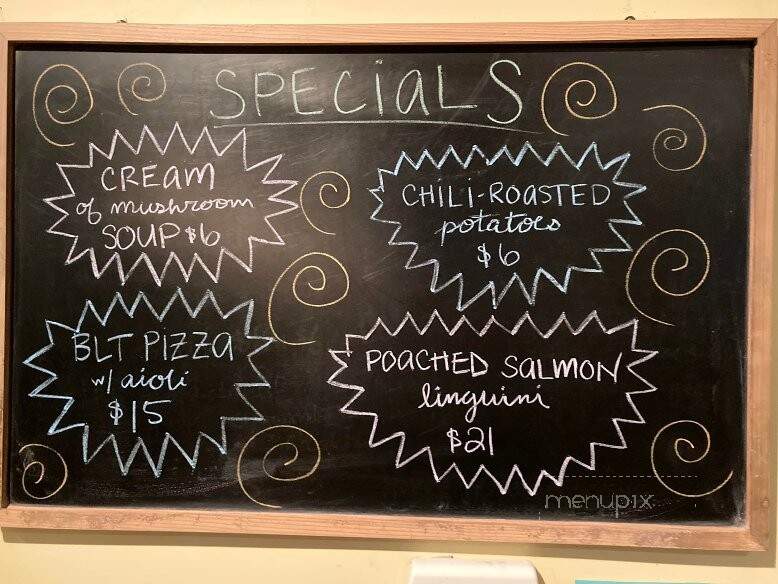 SPECiALS
CREAM
of mushroom
SOUP $6
CHILI-ROASTED
potatoes
$6
BLT PiZZA
w/ aioli
$15
POACHED SALMON
linguini
$21
menupix